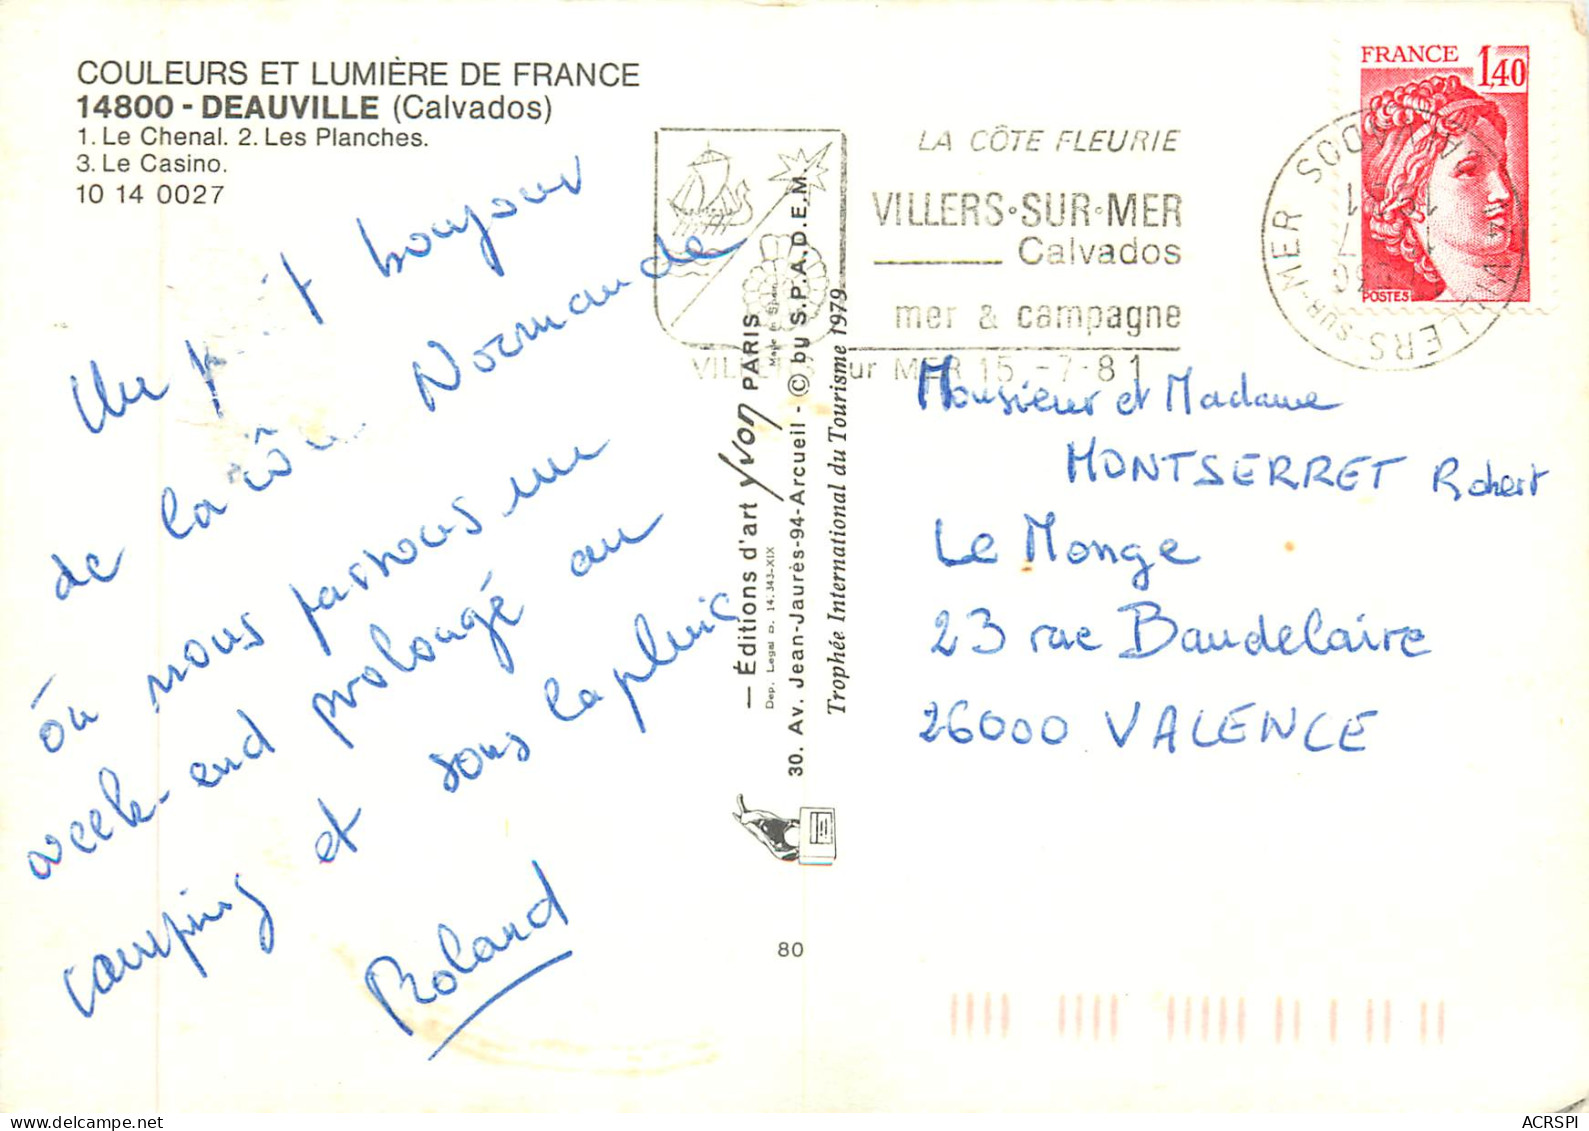 COULEURS ET LUMIÈRE DE FRANCE
14800 - DEAUVILLE (Calvados)
1. Le Chenal. 2. Les Planches.
3. Le Casino.
10 14 0027
Un p it bonjour
de la côte Normande
où nous passons un
week-end prolongé au
camping et sous la pluie
Roland
— Éditions d'art Yvon PARIS
Made in
Dep. Legal B. 14.343-XIX
30. Av. Jean-Jaurès-94-Arcueil - © by S.P.A.D.E.M.
Trophée International du Tourisme 1979
80
LA CÔTE FLEURIE
VILLERS·SUR·MER
Calvados
mer & campagne
VILLERS sur MER 15 -7-81
FRANCE 1,40
POSTES
14 VILLERS-SUR-MER
CALVADOS
Monsieur et Madame
MONTSERRET Robert
Le Monge
23 rue Baudelaire
26000 VALENCE
ACRSPI